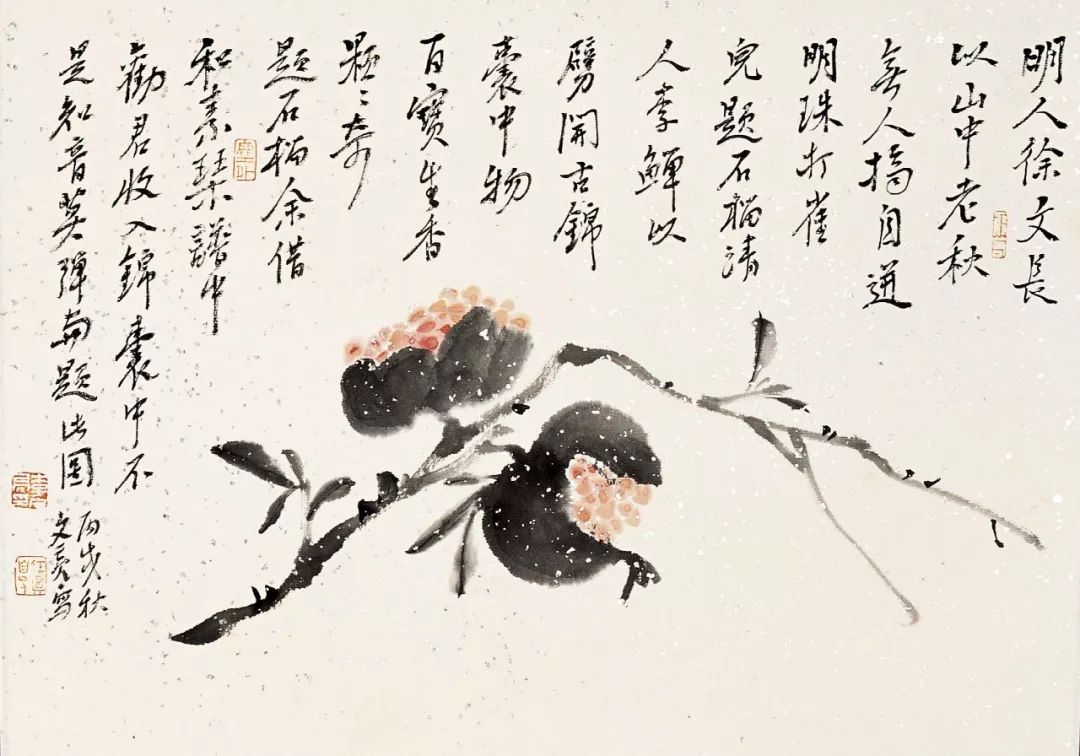 明人徐文長
以山中老秋
無人摘自迸
明珠打雀
兒題石榴清
人李鱓以
劈開古錦
囊中物
百寶生香
顆〻奇
題石榴余借
和素琹譜中
勸君收入錦囊中不
是知音莫彈題此圖
丙戌秋
文寫